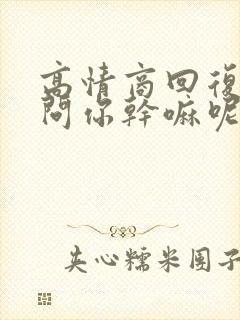 高情商回復
問你幹嘛呢
夹心糯米团子